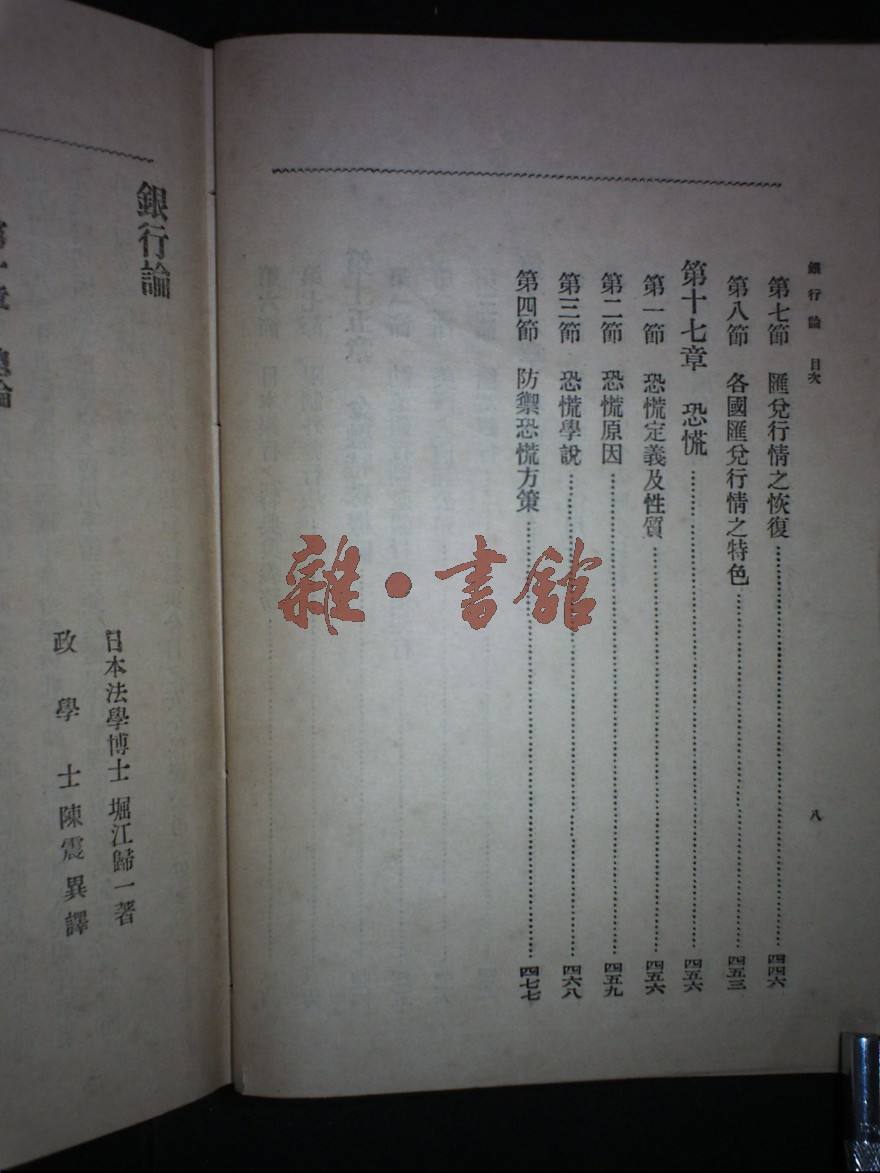 銀行論 目次
八
第七節 匯兌行情之恢復 四四六
第八節 各國匯兌行情之特色 四五三
第十七章 恐慌 四五六
第一節 恐慌定義及性質 四五六
第二節 恐慌原因 四五九
第三節 恐慌學說 四六八
第四節 防禦恐慌方策 四七七
雜·書館
銀行論
日本法學博士 堀江歸一著
政學士 陳震異譯
總論